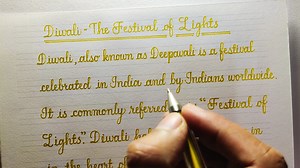 Diwali - The Festival of Lights
Diwali, also known as Deepavali is a festival
celebrated in India and by Indians worldwide.
It is commonly referred “Festival of
Lights.” Diwali in
in the heart of